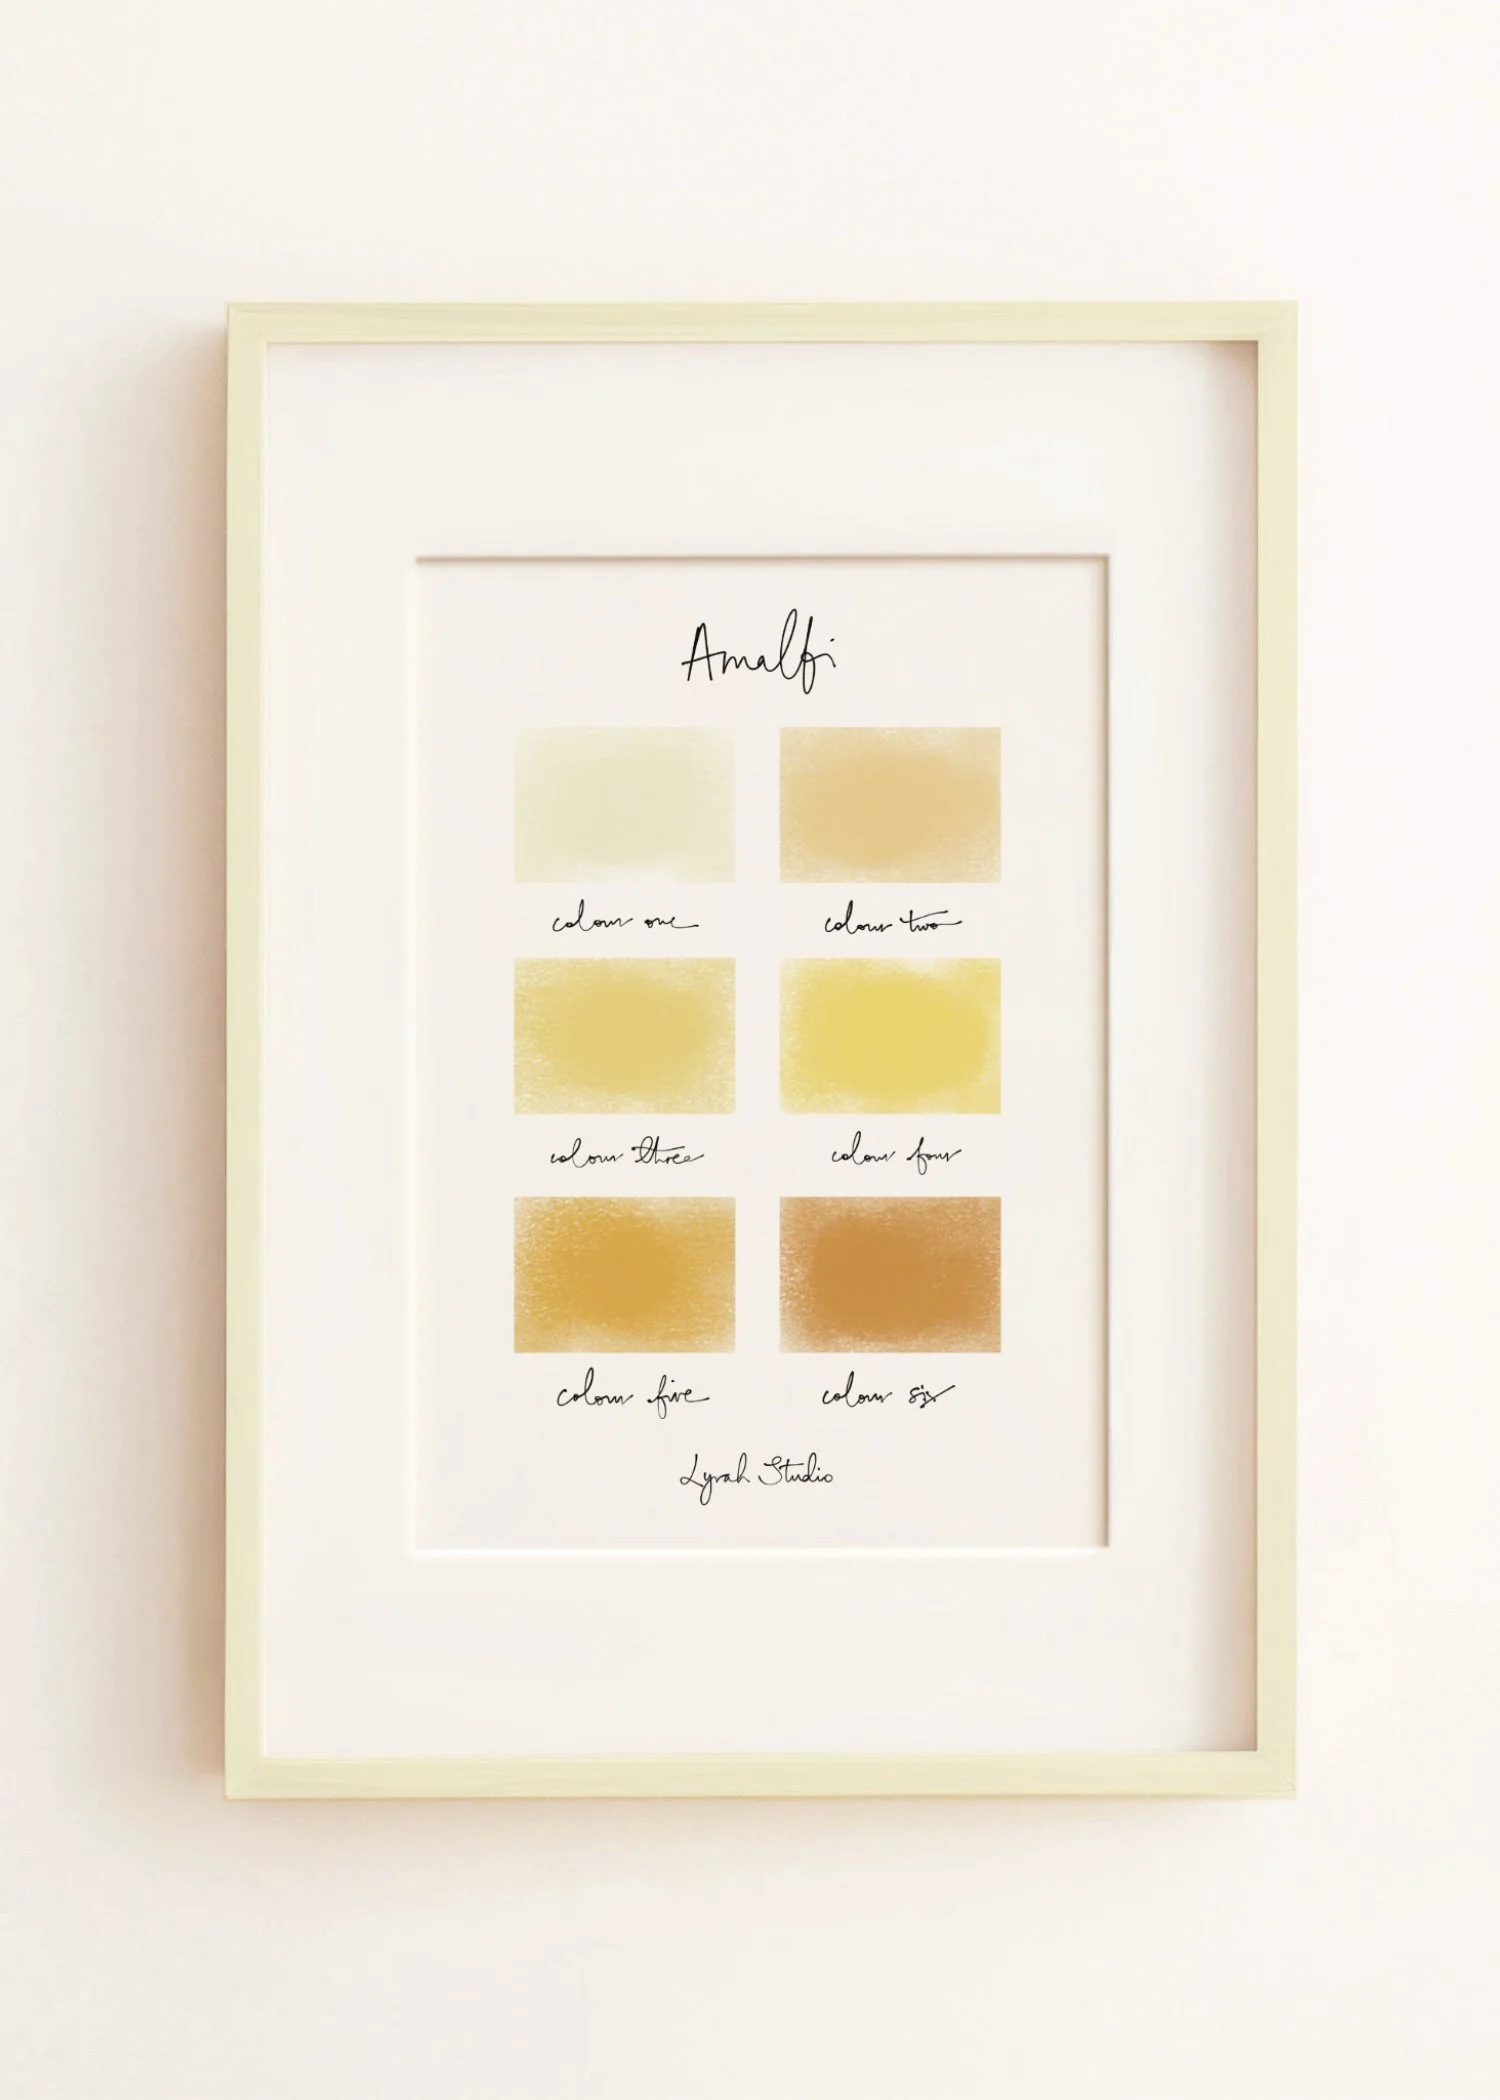 Amalfi
colour one
colour two
colour three
colour four
colour five
colour six
Lyrah Studio